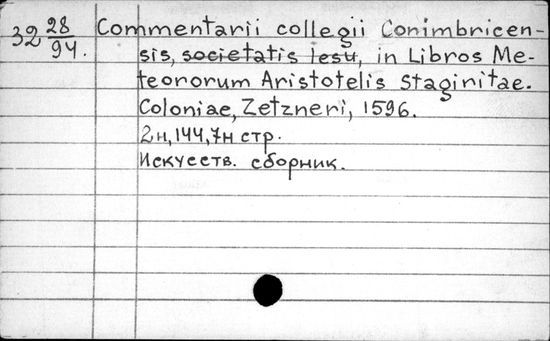 32 28/94. Commentarii collegii Conimbricen-
sis, societatis Iesu, in Libros Me-
teororum Aristotelis Stagiritae.
Coloniae, Zetzneri, 1596.
2н, 144, 7н стр.
Искусств. сборник.